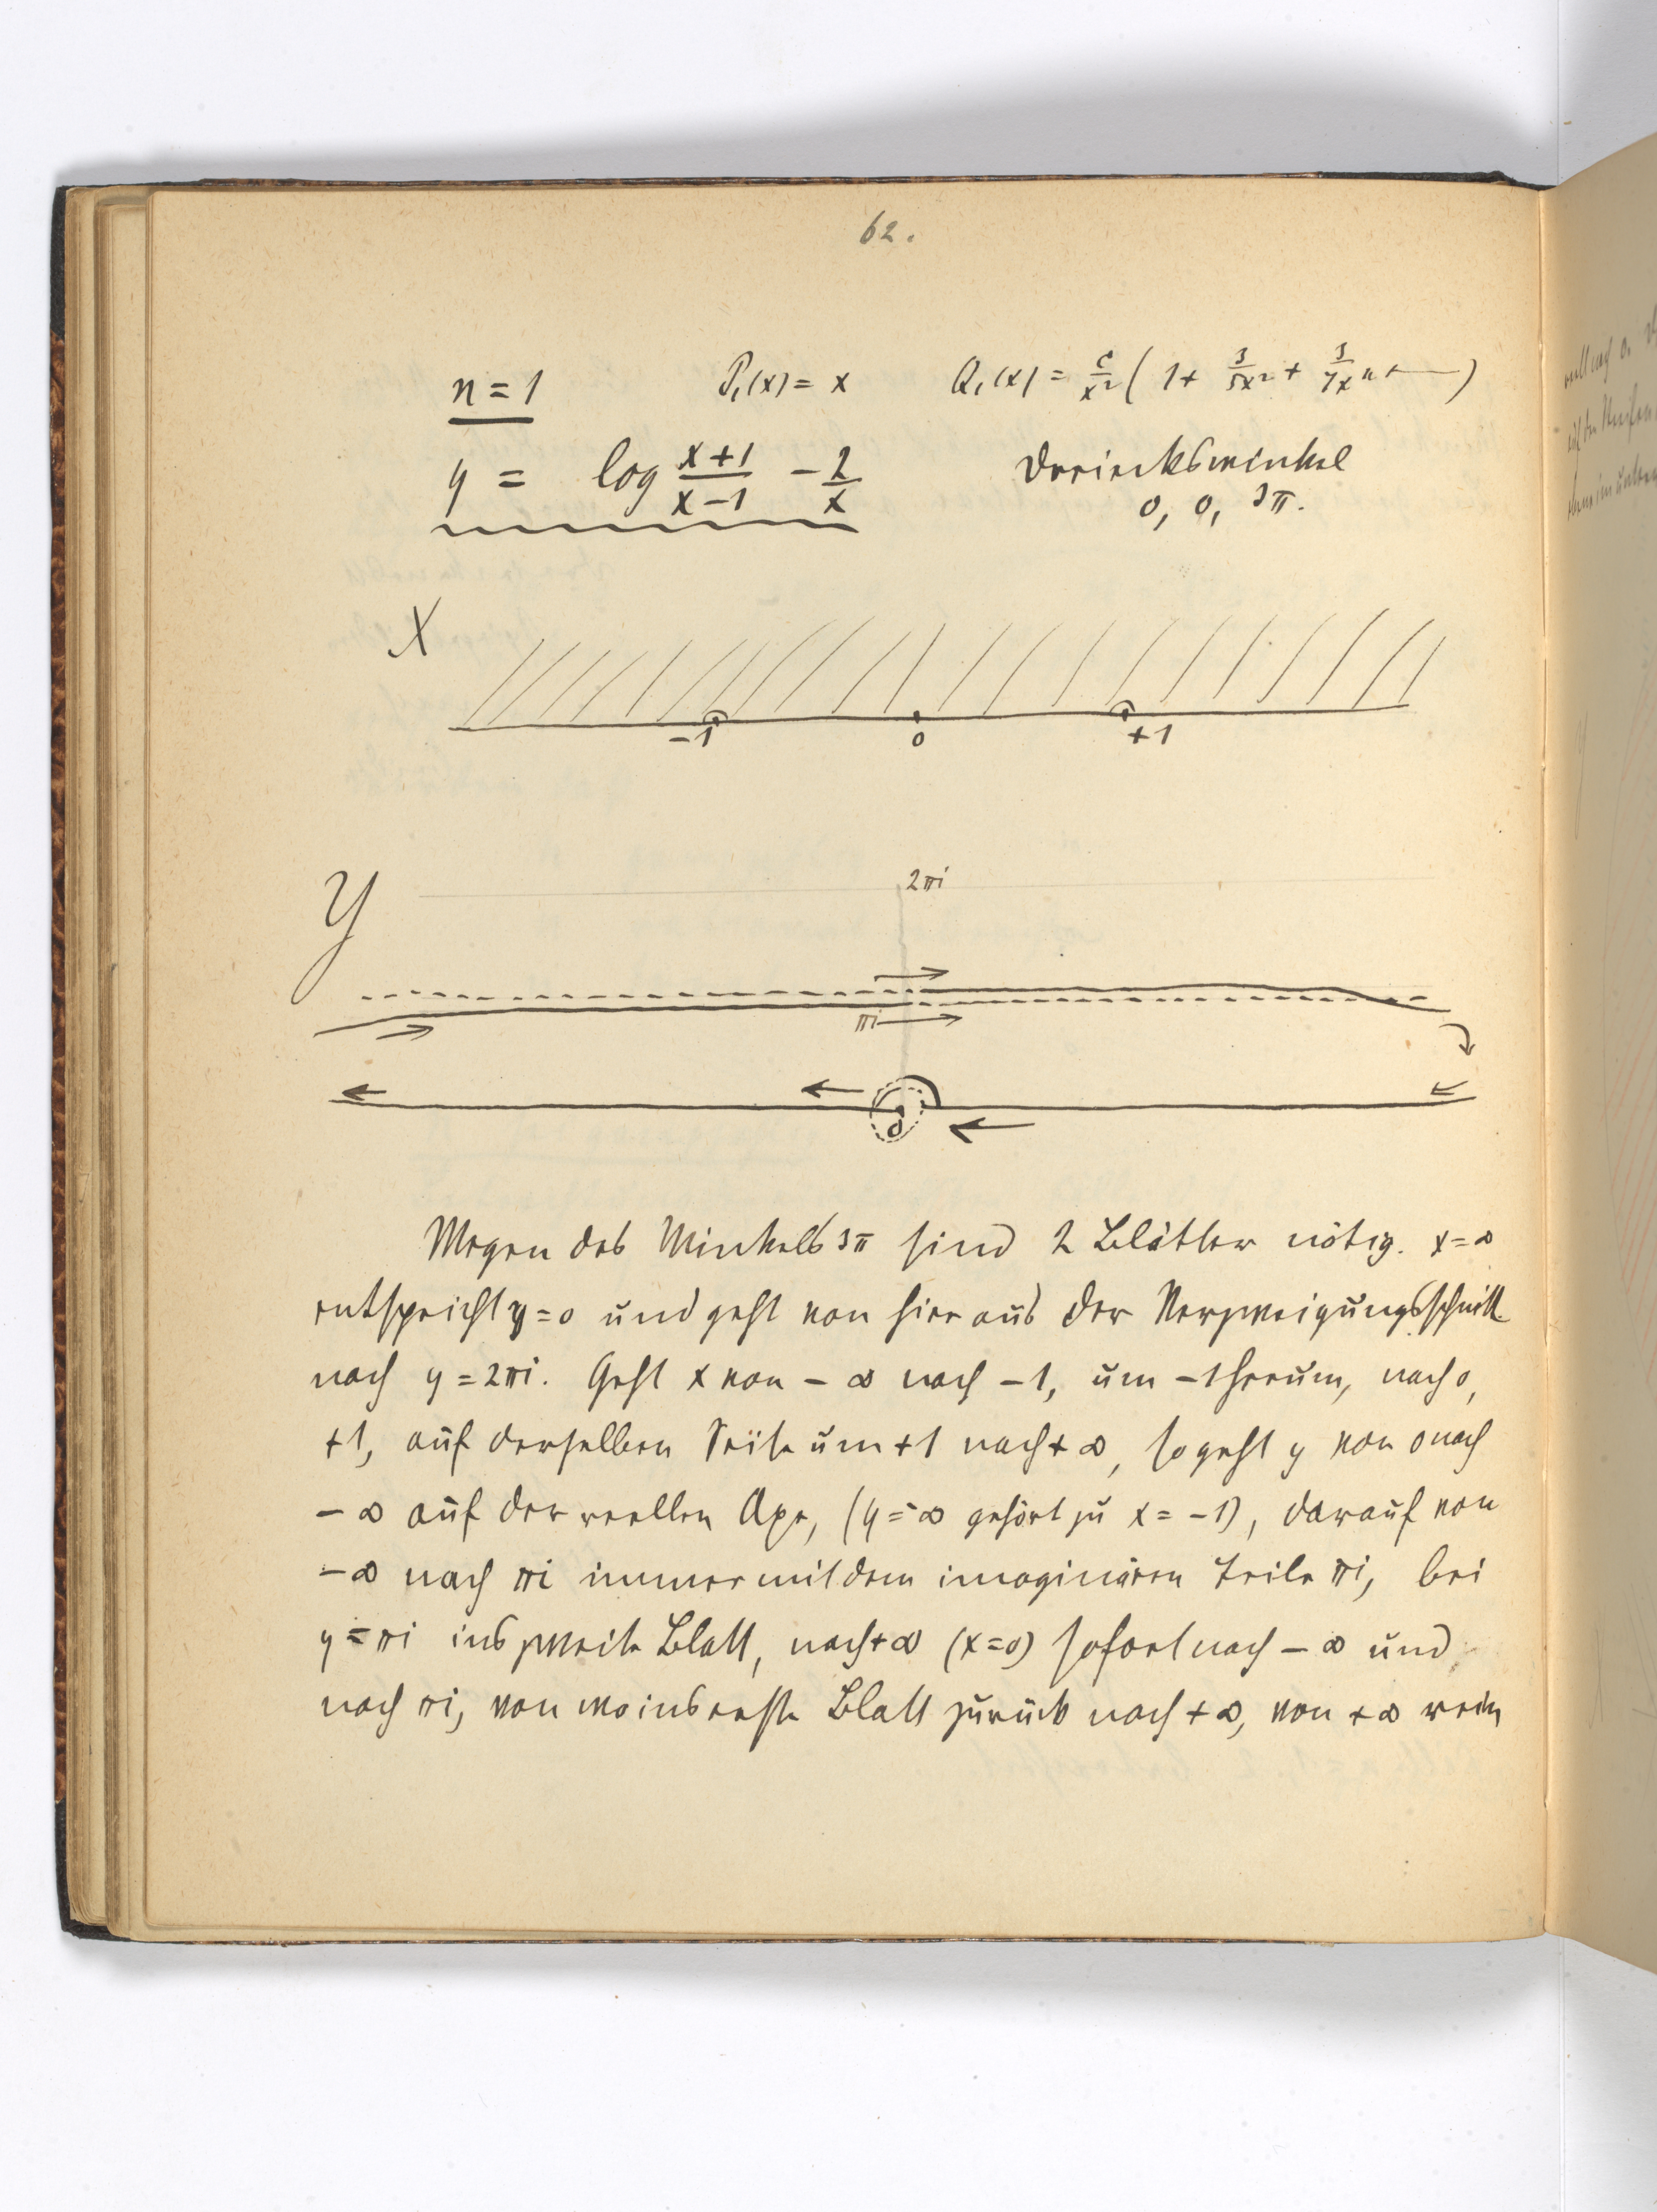 62.
n = 1 P₁(x) = x Q₁(x) = c/x² ( 1 + 3/5x² + 3/7x⁴ + — )
y = log (x+1)/(x−1) − 2/x Dreieckswinkel
0, 0, 3π.
X
−1 0 +1
Y 2πi
πi
0
Wegen des Winkels 3π sind 2 Blätter nötig. x = ∞
entspricht y = 0 und geht von hier aus der Verzweigungsschnitt
nach y = 2πi. Geht x von − ∞ nach −1, um −1 herum, nach 0,
+1, auf derselben Seite um +1 nach + ∞, so geht y von 0 nach
− ∞ auf der reellen Axe, (y = ∞ gehört zu x = −1), darauf von
− ∞ nach πi immer mit dem imaginären Teile πi, bei
y = πi ins zweite Blatt, nach + ∞ (x = 0) sofort nach − ∞ und
nach πi, von wo ins erste Blatt zurück nach + ∞, von + ∞ rein